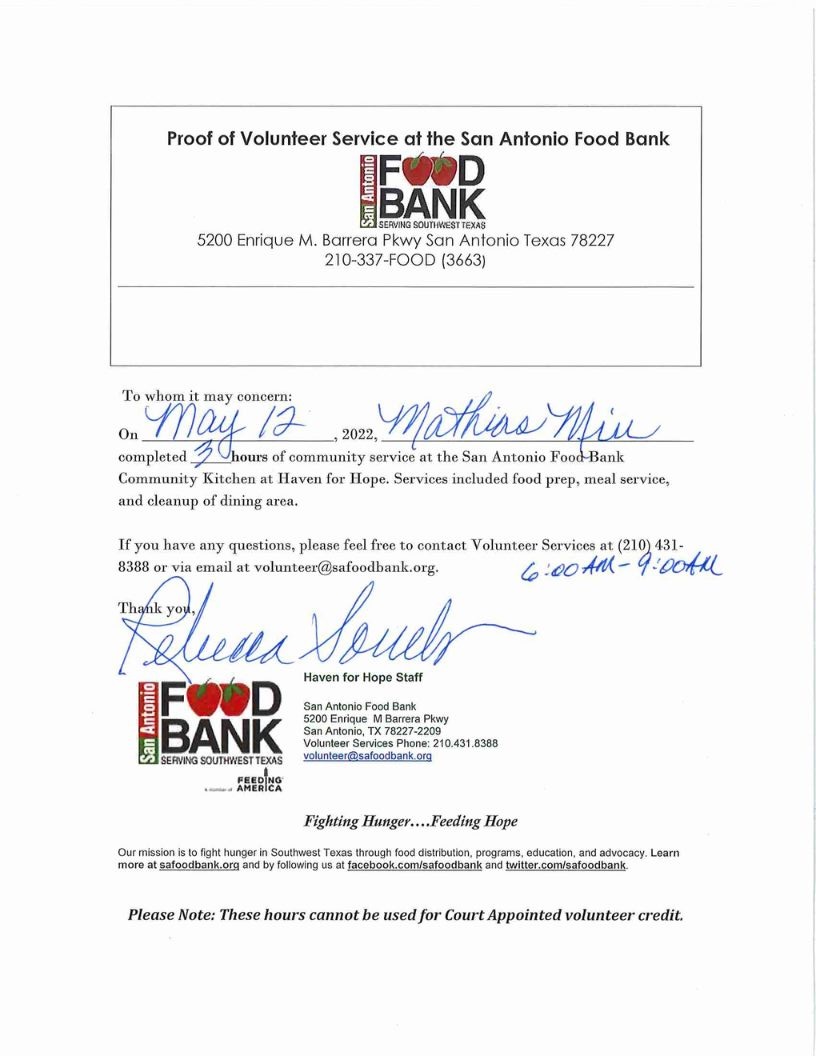 Proof of Volunteer Service at the San Antonio Food Bank
San Antonio
FOOD
BANK
SERVING SOUTHWEST TEXAS
5200 Enrique M. Barrera Pkwy San Antonio Texas 78227
210-337-FOOD (3663)
To whom it may concern:
On May 12, 2022, Mathias Miu
completed 3 hours of community service at the San Antonio Food Bank
Community Kitchen at Haven for Hope. Services included food prep, meal service,
and cleanup of dining area.
If you have any questions, please feel free to contact Volunteer Services at (210) 431-
8388 or via email at volunteer@safoodbank.org.
6:00 AM - 9:00 AM
Thank you,
Rebecca
Haven for Hope Staff
San Antonio
FOOD
BANK
SERVING SOUTHWEST TEXAS
A member of
FEEDING
AMERICA
San Antonio Food Bank
5200 Enrique M Barrera Pkwy
San Antonio, TX 78227-2209
Volunteer Services Phone: 210.431.8388
volunteer@safoodbank.org
Fighting Hunger....Feeding Hope
Our mission is to fight hunger in Southwest Texas through food distribution, programs, education, and advocacy. Learn
more at safoodbank.org and by following us at facebook.com/safoodbank and twitter.com/safoodbank.
Please Note: These hours cannot be used for Court Appointed volunteer credit.